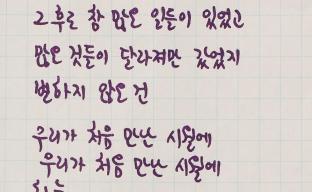 그 후로 참 많은 일들이 있었고
많은 것들이 달라져만 갔었지
변하지 않은 건
우리가 처음 만난 시월에
우리가 처음 만난 시월에